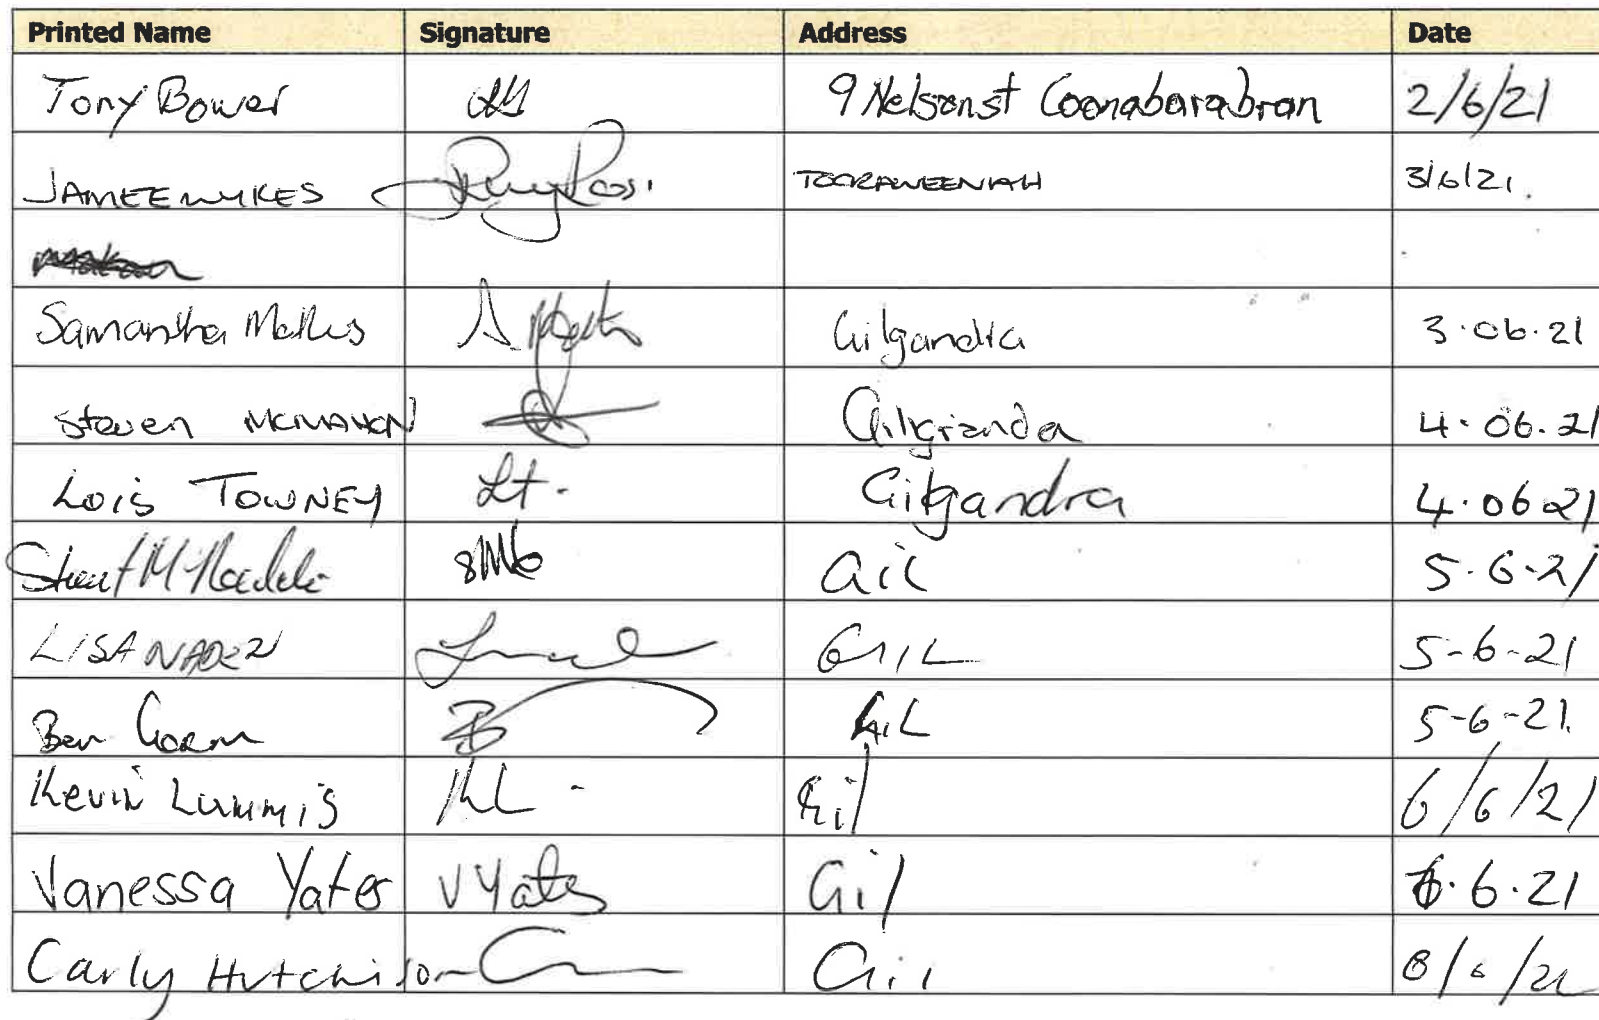 Printed Name Signature Address Date
Tony Bower 9 Nelson st Coonabarabran 2/6/21
JAMEE WYKES TOORAWEENAH 3/6/21.
Samantha Gilgandra 3.06.21
Steven MCMAHON Gilgranda 4.06.21
Lois TOWNEY Lt. Gilgandra 4.06.21
Gil 5.6.21
LISA GIL 5-6-21
Ben GIL 5-6-21.
Kevin Lummis KL Gil 6/6/21
Vanessa Yates V Yates Gil 6.21
Carly Hutchison Gil